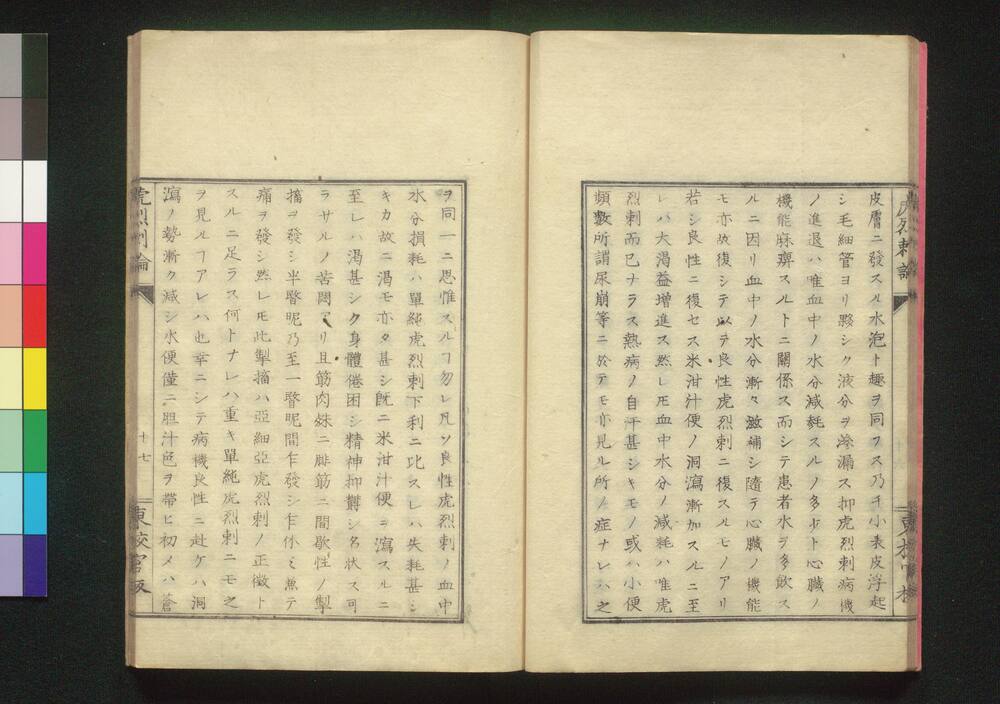 皮膚ニ發スル水泡ト趣ヲ同フス乃チ小表皮浮起
シ毛細管ヨリ夥シク液分ヲ滲漏ス抑虎烈刺病機
ノ進退ハ唯血中ノ水分減耗スルノ多少ト心臓ノ
機能麻痹スルトニ關係ス而シテ患者水ヲ多飲ス
ルニ因リ血中ノ水分漸々滋補シ隨テ心臓ノ機能
モ亦故復シテ以テ良性虎烈刺ニ復スルモノアリ
若シ良性ニ復セス米泔汁便ノ洞瀉漸加スルニ至
レハ大渇益増進ス然レ𪜈血中水分ノ減耗ハ唯虎
烈刺而已ナラス熱病ノ自汗甚シキモノ或ハ小便
頻數所謂尿崩等ニ於テモ亦見ル所ノ症ナレハ之
ヲ同一ニ思惟スルヿ勿レ凡ソ良性虎烈刺ノ血中
水分損耗ハ單純虎烈刺下利ニ比スレハ失耗甚シ
キカ故ニ渇モ亦タ甚シ既ニ米泔汁便ヲ瀉スルニ
至レハ渇甚シク身體倦困シ精神抑欝シ名状ス可
ラサルノ苦悶アリ且筋肉殊ニ腓筋ニ間歇性ノ掣
搐ヲ發シ半瞖眤乃至一瞖眤間乍發シ乍休ミ無テ
痛ヲ發シ然レ𪜈此掣搐ハ亞細亞虎烈刺ノ正徴ト
スルニ足ラス何トナレハ重キ單純虎烈刺ニモ之
ヲ見ルヿアレハ也幸ニシテ病機良性ニ赴ケハ洞
瀉ノ勢漸ク減シ水便僅ニ胆汁色ヲ帶ヒ初メハ蒼
虎烈刺論
十七
東校官版